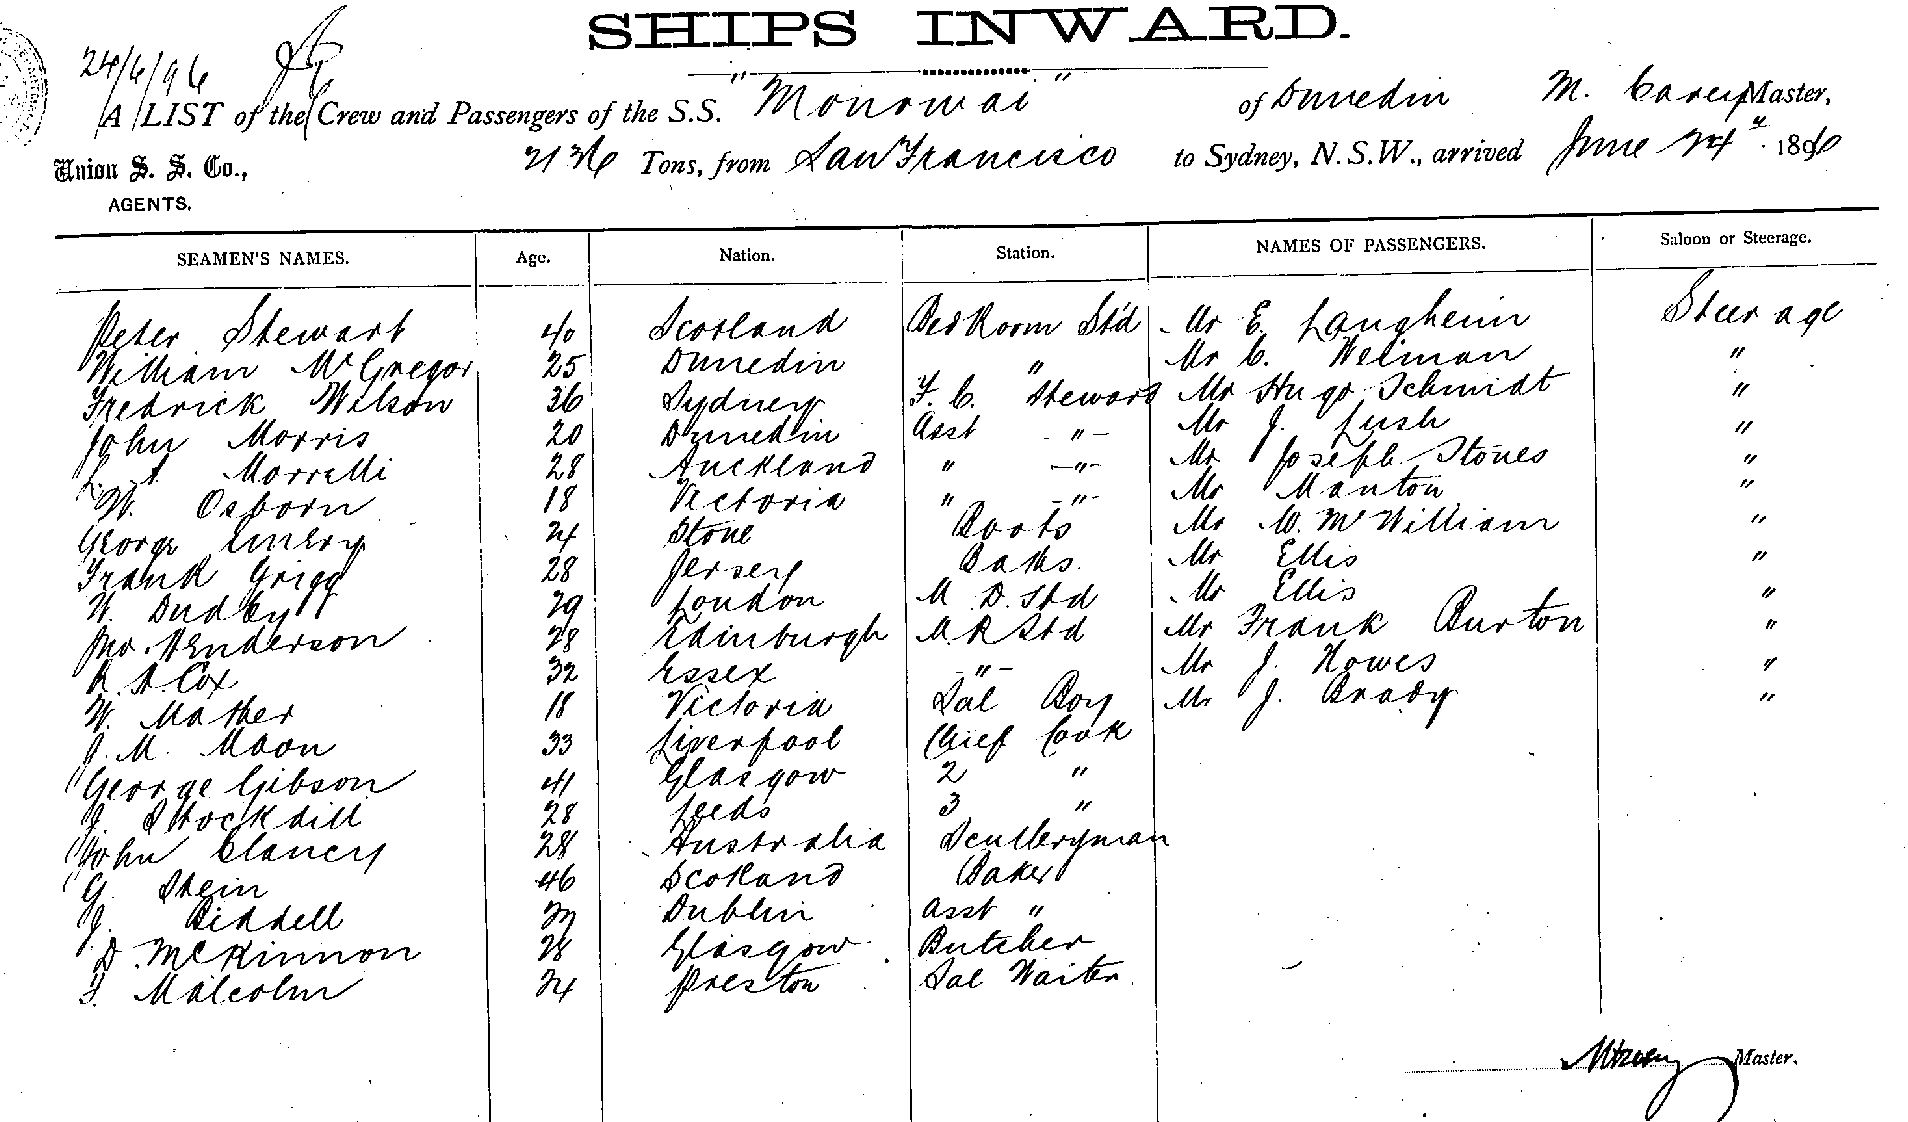 SHIPS INWARD.
24/6/96
A LIST of the Crew and Passengers of the S.S. "Monowai" of Dunedin M. Carey Master,
Union S. S. Co., 2136 Tons, from San Francisco to Sydney, N.S.W., arrived June 24th 1896
AGENTS.
SEAMEN'S NAMES. Age. Nation. Station. NAMES OF PASSENGERS. Saloon or Steerage.
Peter Stewart 40 Scotland Bed Room Std Mr E. Langheim Steerage
William McGregor 25 Dunedin " Mr C. Weiman "
Fredrick Wilson 36 Sydney F. C. Steward Mr Hugo Schmidt "
John Morris 20 Dunedin Asst -"- Mr J. Lush "
Morrelli 28 Auckland " -"- Mr Joseph Stones "
W. Osborn 18 Victoria " -"- Mr Manton "
George Emery 24 Stone Boots Mr W. McWilliam "
Frank Grigg 28 Jersey Baths Mr Ellis "
W. Dudley 29 London M D Std Mr Ellis "
Jno. Henderson 28 Edinburgh M R Std Mr Frank Burton "
R A Cox 32 Essex -"- Mr J. Howes "
W. Mather 18 Victoria Sal Boy Mr J. Brady "
J. M. Moon 33 Liverpool Chief Cook
George Gibson 41 Glasgow 2 "
J. Stockdill 28 Leeds 3 "
John Clancy 28 Australia Sculleryman
G. Stein 46 Scotland Baker
J. Riddell Dublin Asst "
D. McKinnon 28 Glasgow Butcher
F. Malcolm 24 Preston Sal Waiter
Master.